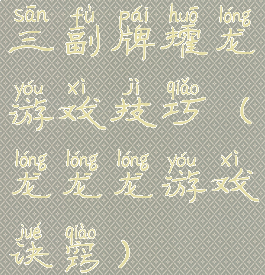 sān fù pái huò lóng
三副牌㸌龙
yóu xì jì qiǎo
游戏技巧（
lóng lóng lóng yóu xì
龙龙龙游戏
jué qiào
诀窍）